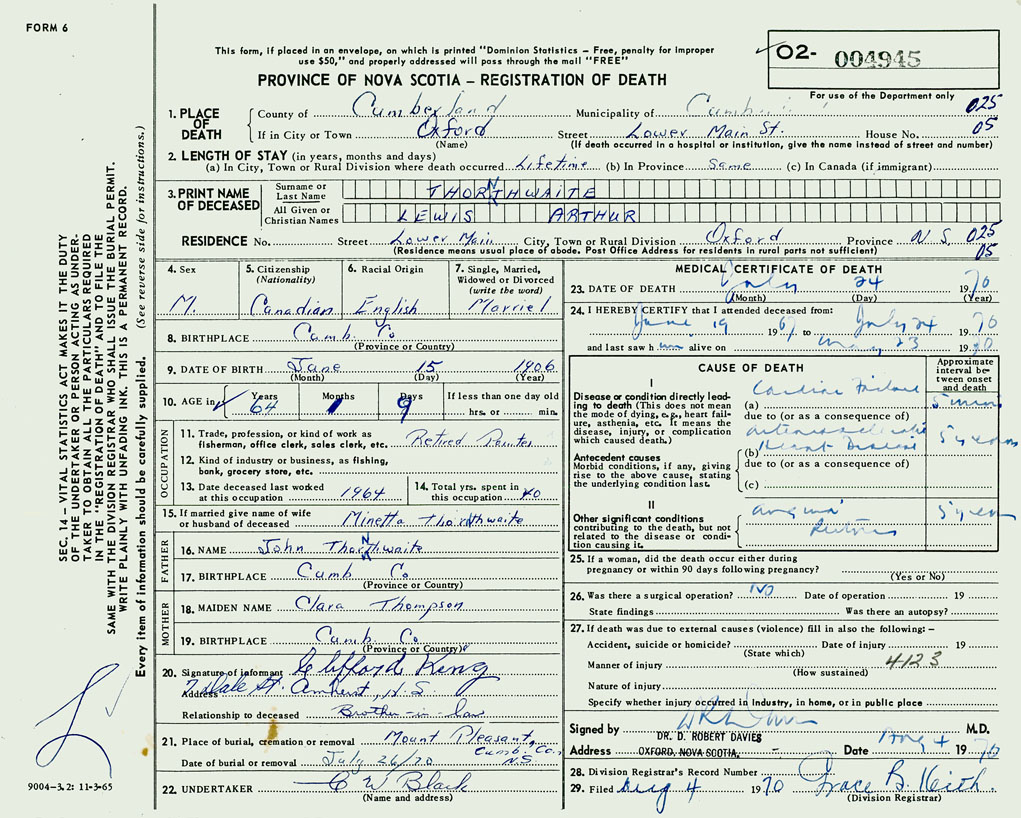 FORM 6
This form, if placed in an envelope, on which is printed "Dominion Statistics – Free, penalty for improper
use $50," and properly addressed will pass through the mail "FREE"
PROVINCE OF NOVA SCOTIA – REGISTRATION OF DEATH
02- 004945
For use of the Department only
1. PLACE OF DEATH
County of Cumberland Municipality of 025
If in City or Town Oxford Street Lower Main St. House No. 05
(Name) (If death occurred in a hospital or institution, give the name instead of street and number)
2. LENGTH OF STAY (in years, months and days)
(a) In City, Town or Rural Division where death occurred Lifetime (b) In Province Same (c) In Canada (if immigrant)
3. PRINT NAME OF DECEASED
Surname or Last Name THORNTHWAITE
All Given or Christian Names LEWIS ARTHUR
RESIDENCE No. Street Lower Main City, Town or Rural Division Oxford Province N.S. 025
(Residence means usual place of abode. Post Office Address for residents in rural parts not sufficient) 05
4. Sex M.
5. Citizenship (Nationality) Canadian
6. Racial Origin English
7. Single, Married, Widowed or Divorced (write the word) Married
8. BIRTHPLACE Cumb. Co
(Province or Country)
9. DATE OF BIRTH June 15 1906
(Month) (Day) (Year)
10. AGE in Years 64 Months 1 Days 9 If less than one day old hrs. or min.
OCCUPATION
11. Trade, profession, or kind of work as fishermen, office clerk, sales clerk, etc. Retired
12. Kind of industry or business, as fishing, bank, grocery store, etc.
13. Date deceased last worked at this occupation 1964
14. Total yrs. spent in this occupation 40
15. If married give name of wife or husband of deceased Minetta Thornthwaite
FATHER
16. NAME John Thornthwaite
17. BIRTHPLACE Cumb Co
(Province or Country)
MOTHER
18. MAIDEN NAME Clara Thompson
19. BIRTHPLACE Cumb. Co.
(Province or Country)
20. Signature of informant Clifford King
Address St. Amherst, N.S.
Relationship to deceased Brother-in-law
21. Place of burial, cremation or removal Mount Pleasant, Cumb. Co. N.S.
Date of burial or removal July 26/70
22. UNDERTAKER C W Black
(Name and address)
MEDICAL CERTIFICATE OF DEATH
23. DATE OF DEATH July 24 1970
(Month) (Day) (Year)
24. I HEREBY CERTIFY that I attended deceased from:
June 19 1967 to July 24 1970
and last saw him alive on May 23 1970
CAUSE OF DEATH
Approximate interval between onset and death
I
Disease or condition directly leading to death (This does not mean the mode of dying, e.g., heart failure, asthenia, etc. It means the disease, injury, or complication which caused death.)
(a) Cardiac Failure 5 mins
due to (or as a consequence of)
Antecedent causes
Morbid conditions, if any, giving rise to the above cause, stating the underlying condition last.
(b) Arteriosclerotic Heart Disease 5 years
due to (or as a consequence of)
(c)
II
Other significant conditions contributing to the death, but not related to the disease or condition causing it.
Angina Pectoris 5 years
25. If a woman, did the death occur either during pregnancy or within 90 days following pregnancy?
(Yes or No)
26. Was there a surgical operation? NO Date of operation 19
State findings Was there an autopsy?
27. If death was due to external causes (violence) fill in also the following: –
Accident, suicide or homicide? Date of injury 19
(State which)
Manner of injury 4123
(How sustained)
Nature of injury
Specify whether injury occurred in Industry, in home, or in public place
Signed by M.D.
DR. D. ROBERT DAVIES
Address OXFORD, NOVA SCOTIA. Date Aug 4 1970
28. Division Registrar's Record Number
29. Filed Aug 4 1970 Grace B. Keith
(Division Registrar)
SEC. 14 – VITAL STATISTICS ACT MAKES IT THE DUTY
OF THE UNDERTAKER OR PERSON ACTING AS UNDER-
TAKER TO OBTAIN ALL THE PARTICULARS REQUIRED
IN THE "REGISTRATION OF DEATH" AND TO FILE THE
SAME WITH THE DIVISION REGISTRAR WHO SHALL ISSUE THE BURIAL PERMIT.
WRITE PLAINLY WITH UNFADING INK. THIS IS A PERMANENT RECORD.
Every item of information should be carefully supplied. (See reverse side for instructions.)
9004-3.2: 11-3-65